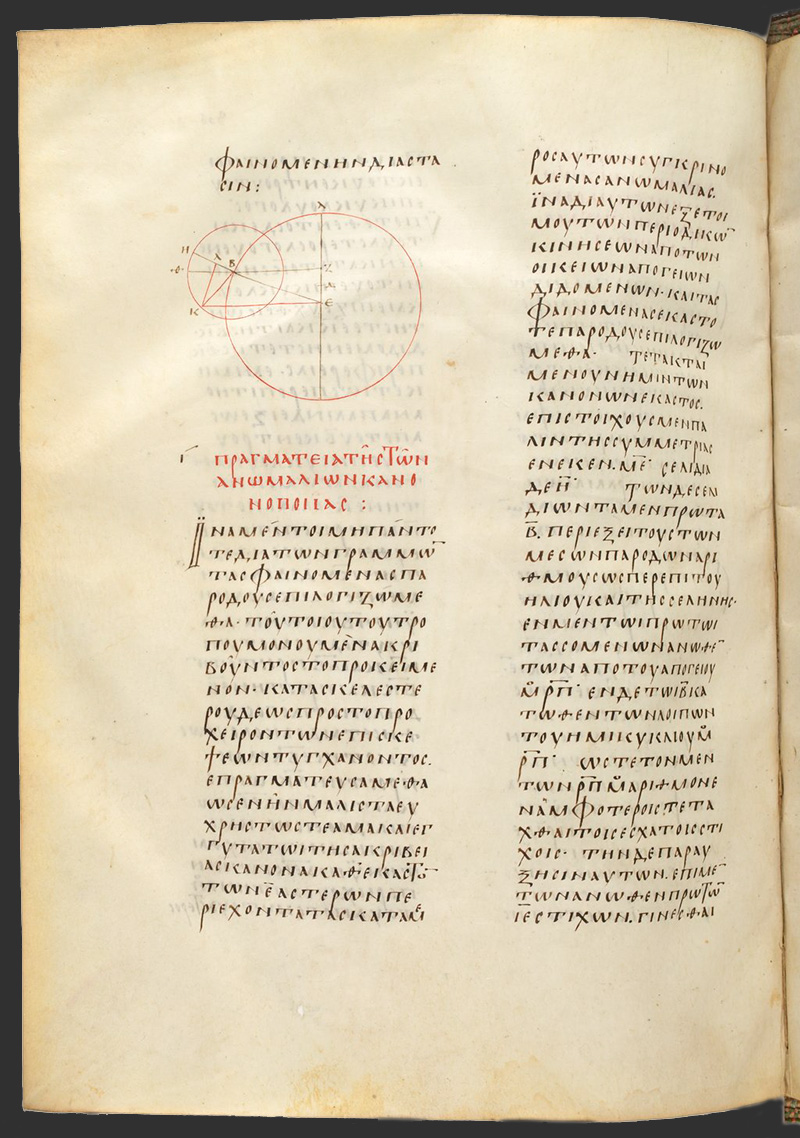 ΦΑΙΝΟΜΕΝΗΝΔΙΑΣΤΑ
ΣΙΝ:
Α
Η
Λ
Β
Θ
Ζ
Δ
Ε
Κ
Γ
ΠΡΑΓΜΑΤΕΙΑΤΗΣΤῶΝ
ΑΝΩΜΑΛΙΩΝΚΑΝΟ
ΝΟΠΟΙΙΑΣ:
ΪΝΑΜΕΝΤΟΙΜΗΠΑΝΤΟ
ΤΕΔΙΑΤΩΝΓΡΑΜΜῶ
ΤΑΣΦΑΙΝΟΜΕΝΑΣΠΑ
ΡΟΔΟΥΣΕΠΙΛΟΓΙΖΩΜΕ
ΘΑ·ΤΟΥΤΟΙΟΥΤΟΥΤΡΟ
ΠΟΥΜΟΝΟΥΜΕΝΑΚΡΙ
ΒΟΥΝΤΟΣΤΟΠΡΟΚΕΙΜΕ
ΝΟΝ·ΚΑΤΑΣΚΕΛΕΣΤΕ
ΡΟΥΔΕΩΣΠΡΟΣΤΟΠΡΟ
ΧΕΙΡΟΝΤΩΝΕΠΙΣΚΕ
ΨΕΩΝΤΥΓΧΑΝΟΝΤΟΣ.
ΕΠΡΑΓΜΑΤΕΥΣΑΜΕΘΑ
ΩΣΕΝΗΝΜΑΛΙΣΤΑΕΥ
ΧΡΗΣΤΩΣΤΕΑΜΑΚΑΙΕΓ
ΓΥΤΑΤΩΙΤΗΣΑΚΡΙΒΕΙ
ΑΣΚΑΝΟΝΑΚΑΘΕΚΑΣΤΟ
ΤΩΝΕ̄ΑΣΤΕΡΩΝΠΕ
ΡΙΕΧΟΝΤΑΤΑΣΚΑΤΑΜΕ
ΡΟΣΑΥΤΩΝΣΥΓΚΡΙΝΟ
ΜΕΝΑΣΑΝΩΜΑΛΙΑΣ.
ΪΝΑΔΙΑΥΤΩΝΕΞΕΤΟΙ
ΜΟΥΤΩΝΠΕΡΙΟΔΙΚῶ
ΚΙΝΗΣΕΩΝΑΠΟΤΩΝ
ΟΙΚΕΙΩΝΑΠΟΓΕΙΩΝ
ΔΙΔΟΜΕΝΩΝ·ΚΑΙΤΑΣ
ΦΑΙΝΟΜΕΝΑΣΕΚΑΣΤΟ
ΤΕΠΑΡΟΔΟΥΣΕΠΙΛΟΓΙΖΩ
ΜΕΘΑ· ΤΕΤΑΚΤΑΙ
ΜΕΝΟΥΝΗΜΙΝΤΩΝ
ΚΑΝΟΝΩΝΕΚΑΣΤΟΣ.
ΕΠΙΣΤΟΙΧΟΥΣΜΕΝΠΑ
ΛΙΝΤΗΣΣΥΜΜΕΤΡΙΑΣ
ΕΝΕΚΕΝ.Μ̄Ε̄ ΣΕΛΙΔΙΑ
ΔΕΗ̄ ΤΩΝΔΕΣΕΛΙ
ΔΙΩΝΤΑΜΕΝΠΡΩΤΑ
Β̄.ΠΕΡΙΕΞΕΙΤΟΥΣΤΩΝ
ΜΕΣΩΝΠΑΡΟΔΩΝΑΡΙ
ΘΜΟΥΣΩΣΠΕΡΕΠΙΤΟΥ
ΗΛΙΟΥΚΑΙΤΗΣΣΕΛΗΝΗΣ·
ΕΝΜΕΝΤΩΙΠΡΩΤΩΙ
ΤΑΣΣΟΜΕΝΩΝΑΝΩΘΕ
ΤΩΝΑΠΟΤΟΥΑΠΟΓΕΙΟΥ
Μ̊Ρ̄Π̄ ΕΝΔΕΤΩΙΒ̄ΚΑ
ΤΩΘΕΝΤΩΝΛΟΙΠΩΝ
ΤΟΥΗΜΙΚΥΚΛΙΟΥΜ̊
Ρ̄Π̄ ΩΣΤΕΤΟΝΜΕΝ
ΤΩΝΡ̄Π̄Μ̊ΑΡΙΘΜΟΝΕ
ΝΑΜΦΟΤΕΡΟΙΣΤΕΤΑ
ΧΘΑΙΤΟΙΣΕΣΧΑΤΟΙΣΣΤΙ
ΧΟΙΣ· ΤΗΝΔΕΠΑΡΑΥ
ΞΗΣΙΝΑΥΤΩΝ.ΕΠΙΜΕ
ΤΩΝΑΝΩΘΕΝΠΡΩΤῶ
ῙΕ̄ΣΤΙΧΩΝ.ΓΙΝΕΣΘΑΙ